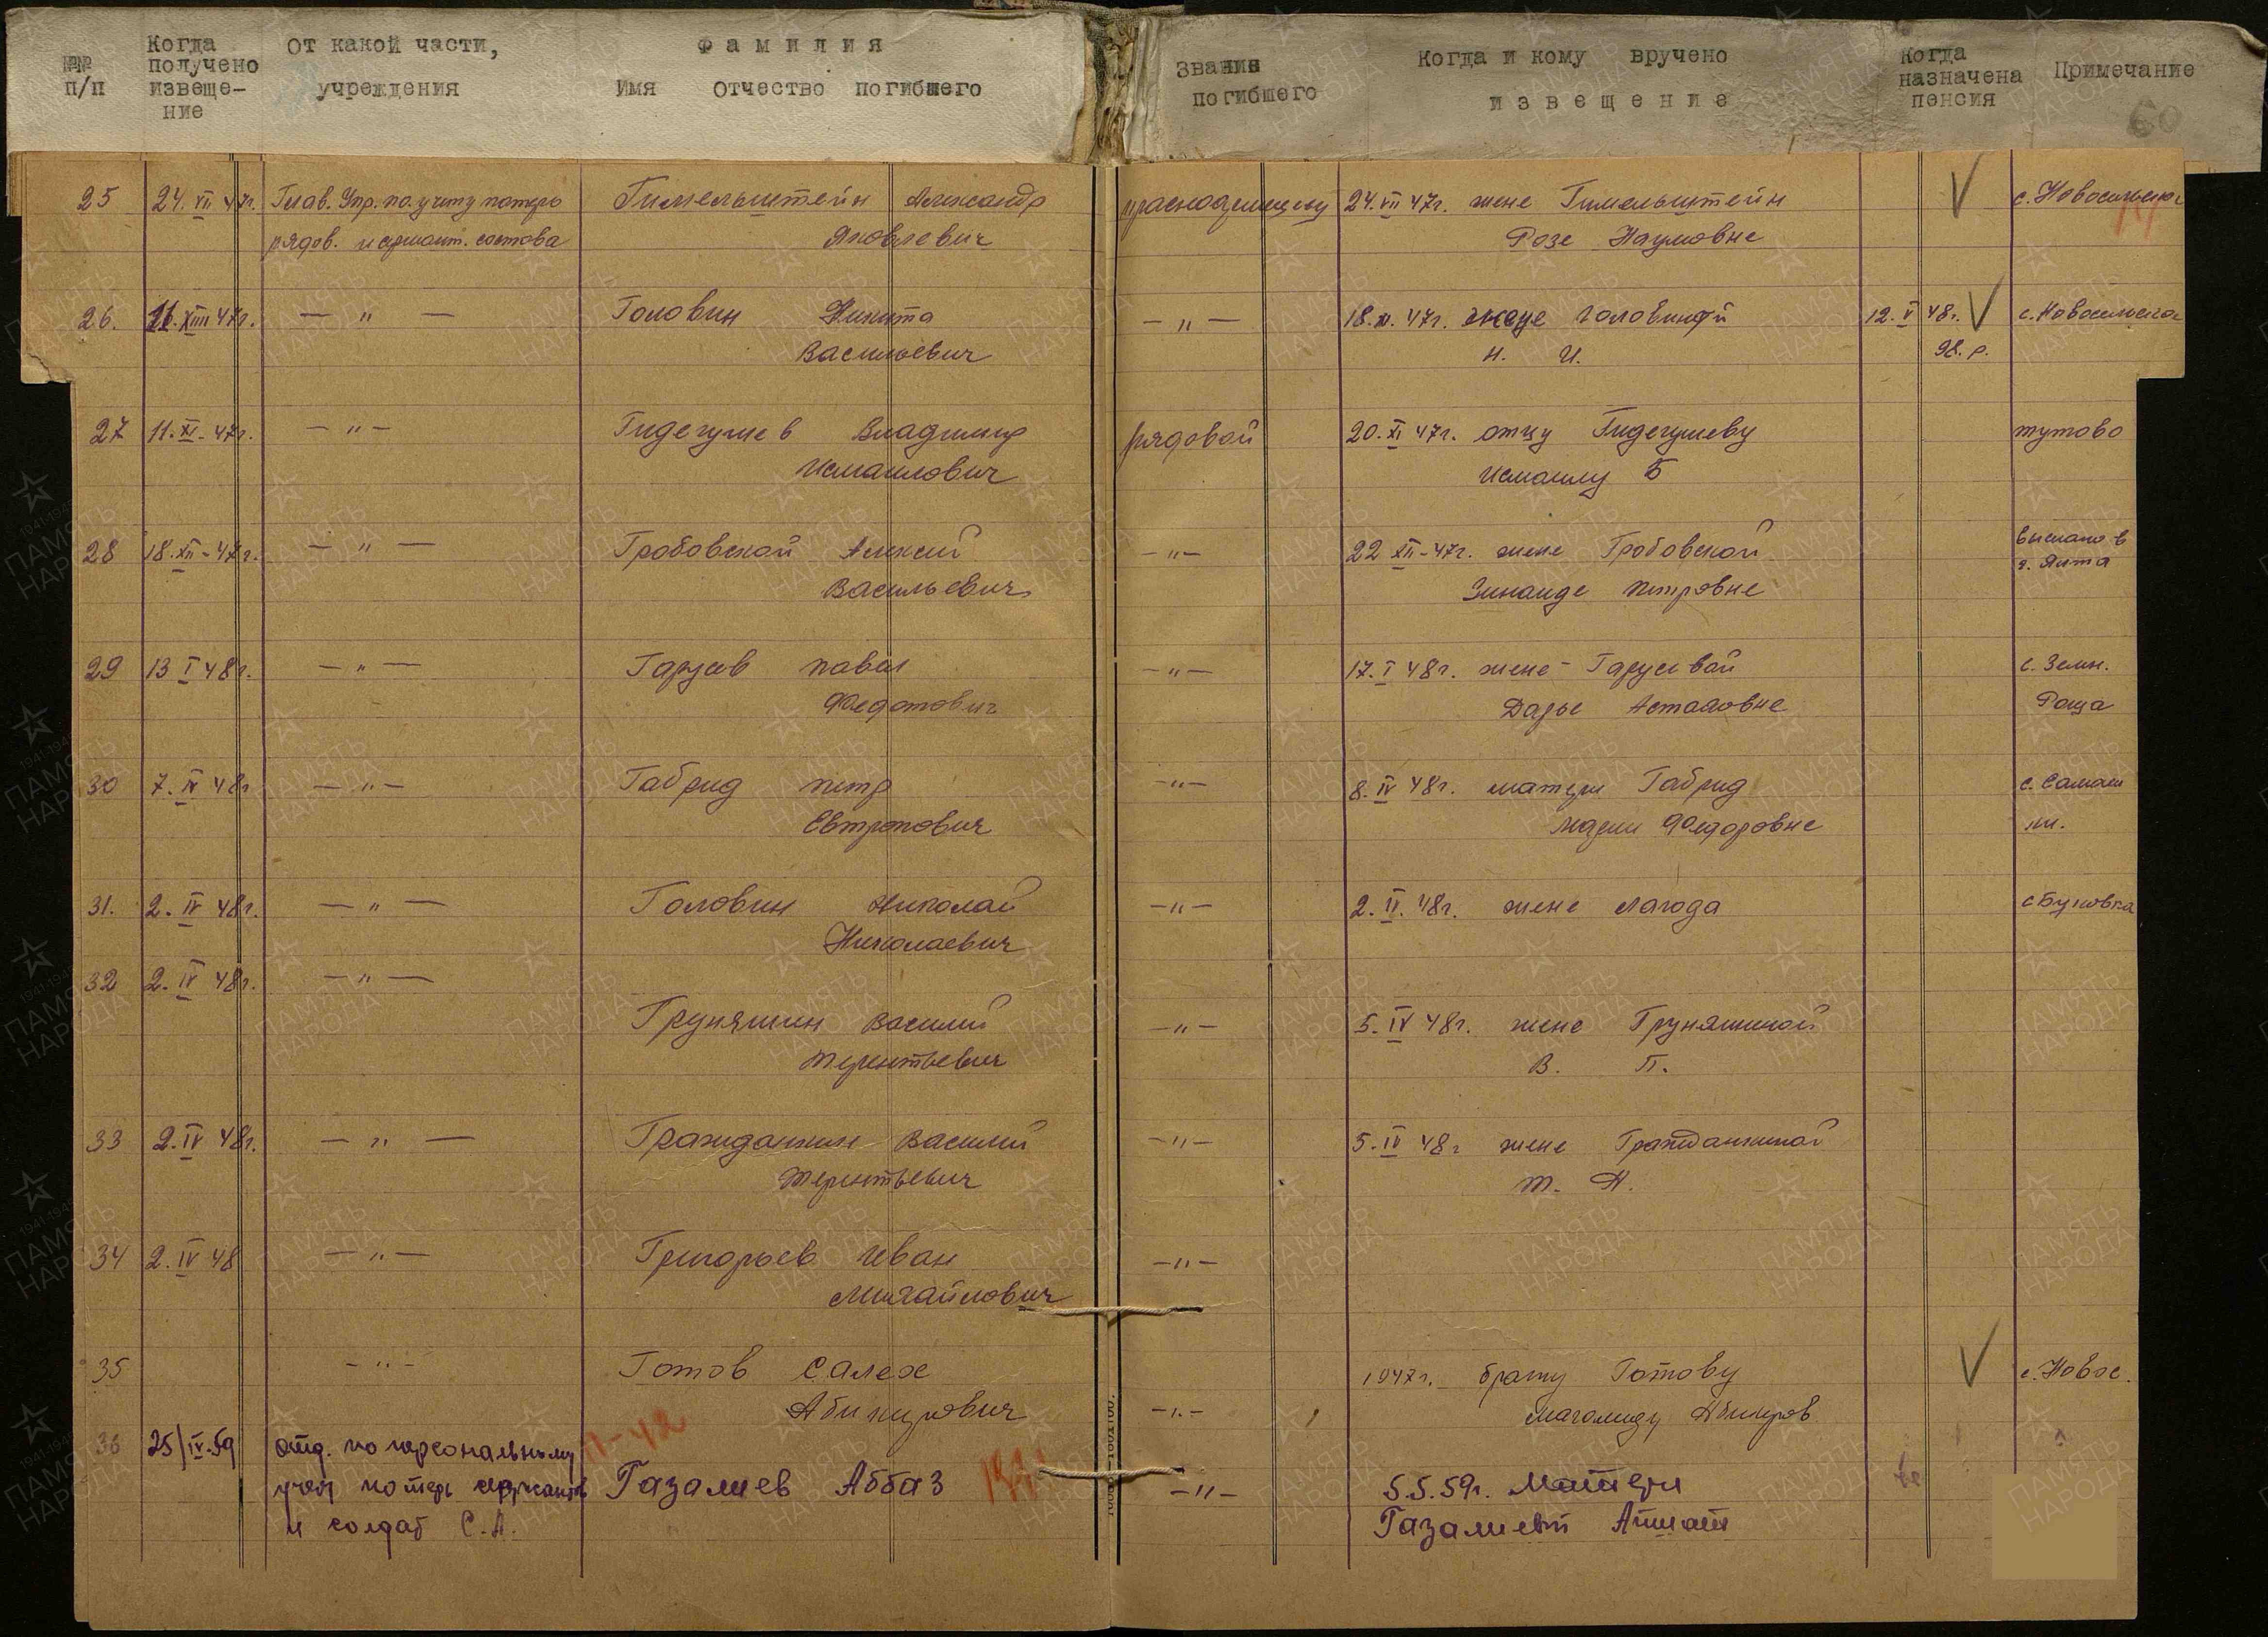 №№ п/п
Когда получено извеще- ние
От какой части, учреждения
Фамилия
Имя Отчество погибшего
Звание погибшего
Когда и кому вручено
извещение
Когда назначена пенсия
Примечание
60
25 24.VII 47г. Глав. Упр. по учету потерь Гимельштейн Александр красноармеец 24.VII 47г. жене Гимельштейн с. Новосельское
рядов. и сержант. состава Яковлевич Розе Наумовне
26. 11.XIII 47г. — " — Головин Никита — " — 18.XI.47г. жене Головиной 12.V 48г. с. Новосельское
Васильевич Н. И. 98.р.
27 11.XI-47г. — " — Гидегушев Владимир рядовой 20.XI 47г. отцу Гидегушеву тутово
Исмаилович Исмаилу Б
28 18.XII-47г. — " — Гробовской Алексей — " — 22 XII-47г. жене Гробовской выслано в
Васильевич Зинаиде Петровне г. Ялта
29 13 I 48г. — " — Гарусов Павел — " — 17.I 48г. жене Гарусовой с. Зелен.
Федотович Дарье Роща
30 7.IV 48г — " — Габрид Петр — " — 8.IV 48г. матери Габрид с. Самаш
Евтропович Марии Федоровне ки.
31. 2.IV 48г. — " — Головин Николай — " — 2.IV.48г. жене Лагода с Буковка
Николаевич
32 2.IV 48г. — " —
Груняшин Василий — " — 5.IV 48г. жене Груняшиной
Терентьевич В. П.
33 2.IV 48г. — " — Гражданкин Василий — " — 5.IV 48г жене Гражданкиной
Терентьевич Т. Н.
34 2.IV 48 — " — Григорьев Иван — " —
Михайлович
35 — " — Готов Салех 1947г. брату Готову с. Новос.
Абикирович — " — Магомеду Абикиров
36 25/IV.59 Отд. по персональному
учет потерь сержантов Газалиев Аббаз — " — 5.5.59г. Матери
и солдат С.А. Газалиевой